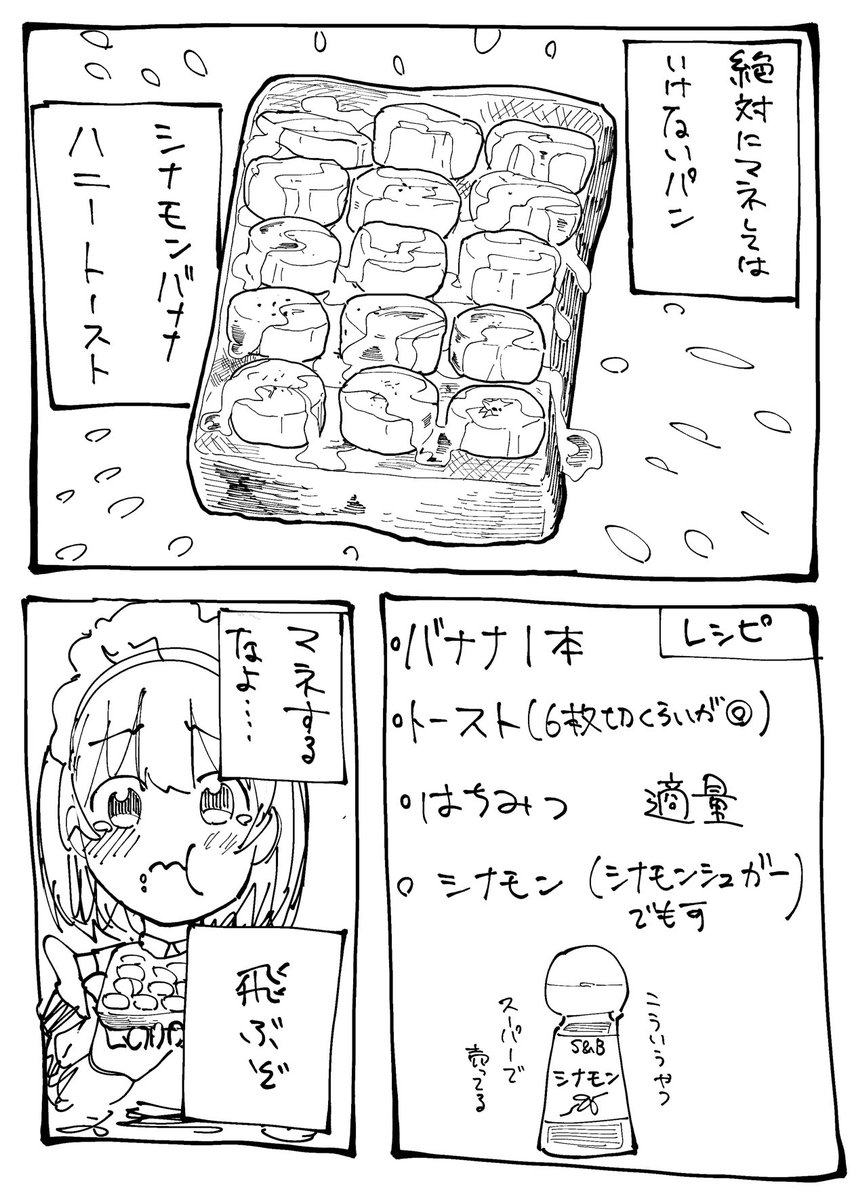 絶対にマネしては
いけないパン
シナモンバナナ
ハニートースト
レシピ
○バナナ1本
○トースト(6枚切くらいが◎)
○はちみつ 適量
○シナモン(シナモンシュガー)
でも可
こういうやつ
スーパーで
売ってる
S&B
シナモン
マネする
なよ‥‥
飛ぶぞ